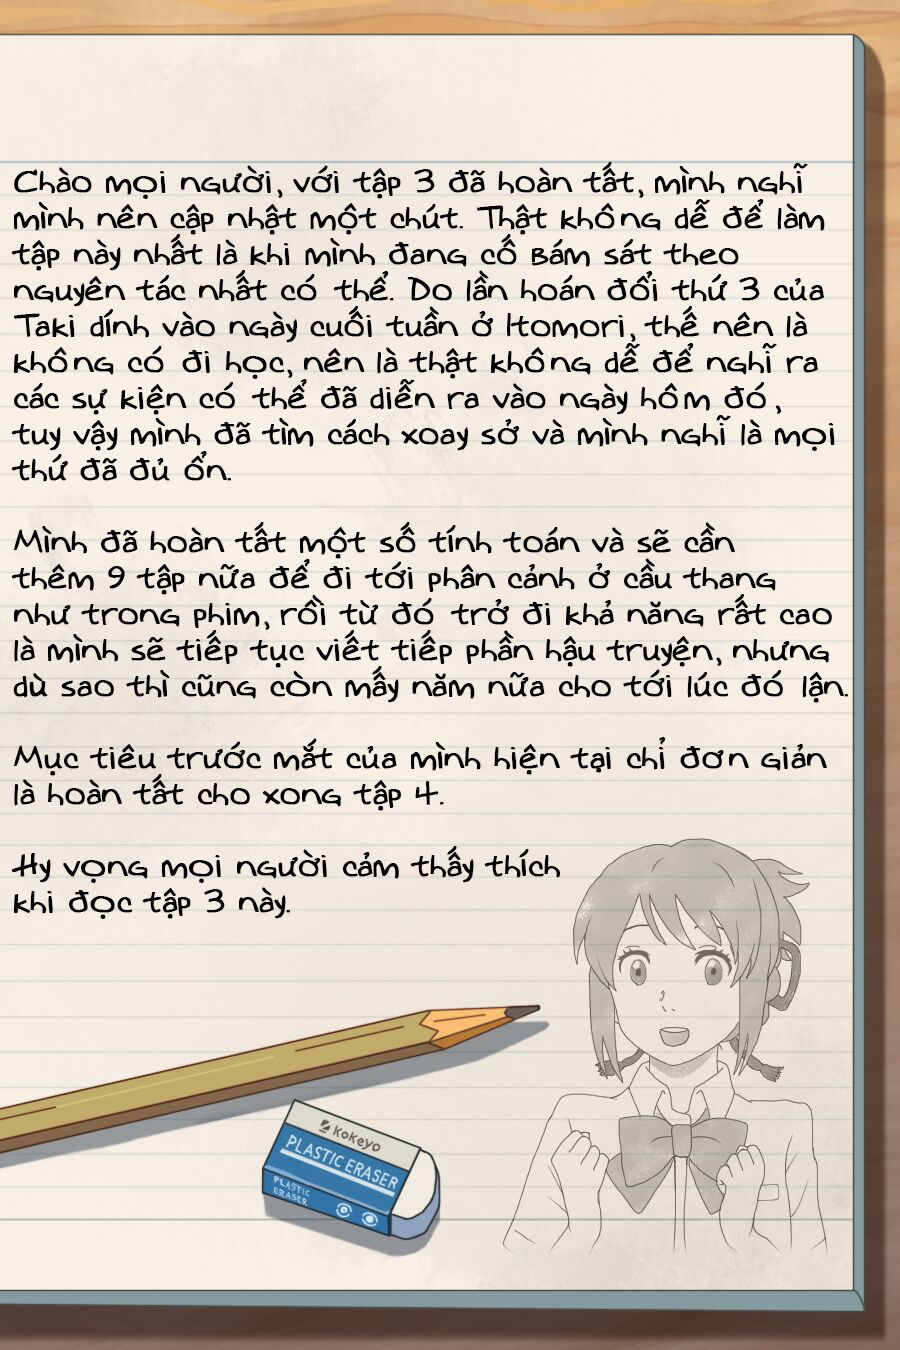 Chào mọi người, với tập 3 đã hoàn tất, mình nghĩ
mình nên cập nhật một chút. Thật không dễ để làm
tập này nhất là khi mình đang cố bám sát theo
nguyên tác nhất có thể. Do lần hoán đổi thứ 3 của
Taki dính vào ngày cuối tuần ở Itomori, thế nên là
không có đi học, nên là thật không dễ để nghĩ ra
các sự kiện có thể đã diễn ra vào ngày hôm đó,
tuy vậy mình đã tìm cách xoay sở và mình nghĩ là mọi
thứ đã đủ ổn.
Mình đã hoàn tất một số tính toán và sẽ cần
thêm 9 tập nữa để đi tới phân cảnh ở cầu thang
như trong phim, rồi từ đó trở đi khả năng rất cao
là mình sẽ tiếp tục viết tiếp phần hậu truyện, nhưng
dù sao thì cũng còn mấy năm nữa cho tới lúc đó lận.
Mục tiêu trước mắt của mình hiện tại chỉ đơn giản
là hoàn tất cho xong tập 4.
Hy vọng mọi người cảm thấy thích
khi đọc tập 3 này.
Kokeyo
PLASTIC ERASER
PLASTIC
ERASER